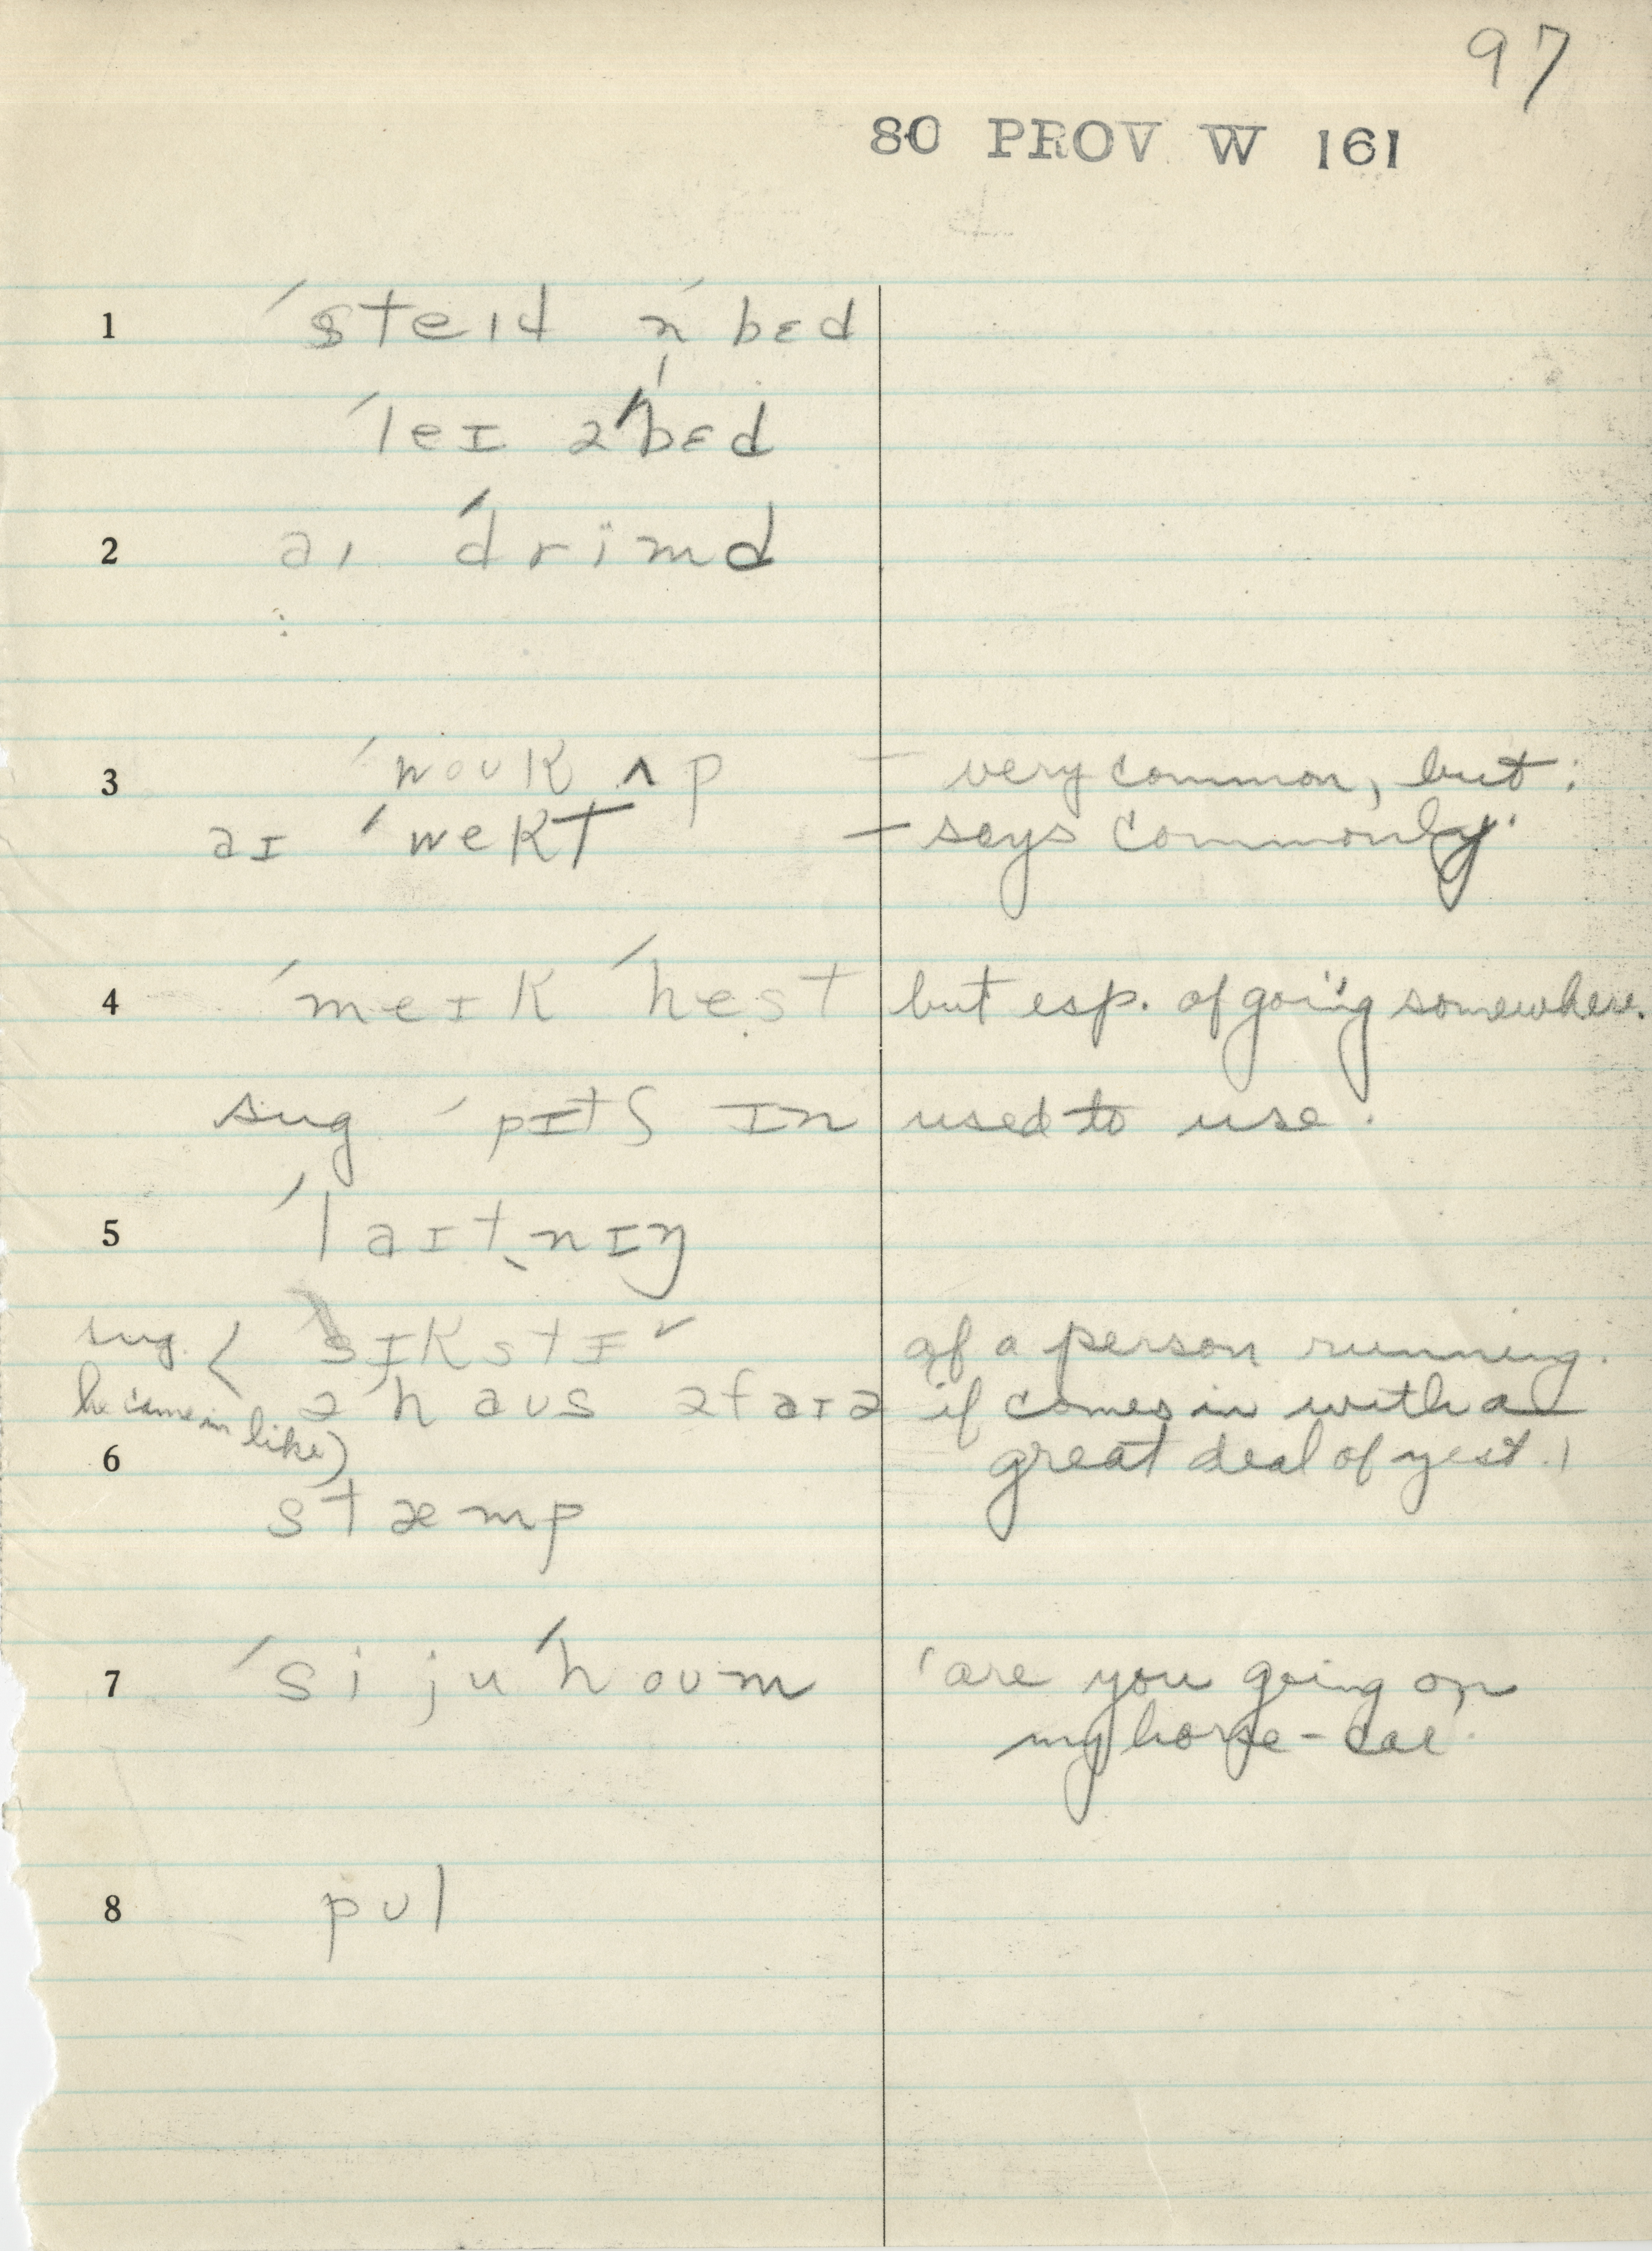 97
80 PROV W 161
1 ˈsteɪd n̩ ˈbɛd
ˈleɪ əˈbɛd
2 aɪ ˈdrimd
3 ˈwoʊk ʌp – very common, but:
aɪ ˈwekt – says commonly.
4 ˈmeɪk ˈhest but esp. of going somewhere.
sug ˈpɪtʃ ɪn used to use.
5 ˈlaɪtˌnɪŋ
sug. < sɪkstɪ ✓ of a person running.
he came in like) ə haus əfaɪə if comes in with a
6 great deal of zest.)
stæmp
7 ˈsi ju ˈhoʊm 'are you going on
my horse-car'
8 pʊl